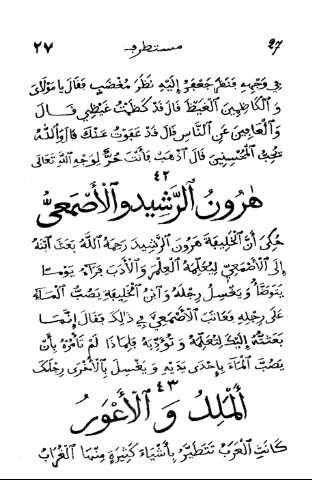 ٢٧ مستطرف 27
في وَجْهِهِ فَنَظَرَ جَعْفَرٌ إِلَيْهِ نَظَرَ مُغْضَبٍ فَقَالَ يَا مَوْلَايَ
وَالْكَاظِمِينَ الْغَيْظَ قَالَ قَدْ كَظَمْتُ غَيْظِي قَالَ
وَالْعَافِينَ عَنِ النَّاسِ قَالَ قَدْ عَفَوْتُ عَنْكَ قَالَ وَاللّٰهُ
يُحِبُّ الْمُحْسِنِينَ قَالَ اذْهَبْ فَأَنْتَ حُرٌّ لِوَجْهِ اللّٰهِ تَعَالَى
٤٢
هٰرُونُ الرَّشِيدُ وَالْأَصْمَعِيُّ
حُكِيَ أَنَّ الْخَلِيفَةَ هَرُونَ الرَّشِيدَ رَحِمَهُ اللّٰهُ بَعَثَ ابْنَهُ
إِلَى الْأَصْمَعِيِّ لِيُعَلِّمَهُ الْعِلْمَ وَالْأَدَبَ فَرَآهُ يَوْمًا
يَتَوَضَّأُ وَيَغْسِلُ رِجْلَهُ وَابْنُ الْخَلِيفَةِ يَصُبُّ الْمَاءَ
عَلَى رِجْلِهِ فَعَاتَبَ الْأَصْمَعِيَّ فِي ذٰلِكَ فَقَالَ إِنَّمَا
بَعَثْتُهُ إِلَيْكَ لِتُعَلِّمَهُ وَتُؤَدِّبَهُ فَلِمَاذَا لَمْ تَأْمُرْهُ بِأَنْ
يَصُبَّ الْمَاءَ بِإِحْدَى يَدَيْهِ وَيَغْسِلَ بِالْأُخْرَى رِجْلَكَ
٤٣
أَلْمَلِكُ وَالْأَعْوَرُ
كَانَتِ الْعَرَبُ تَتَطَيَّرُ بِأَشْيَاءَ كَثِيرَةٍ مِنْهَا الْغُرَابُ